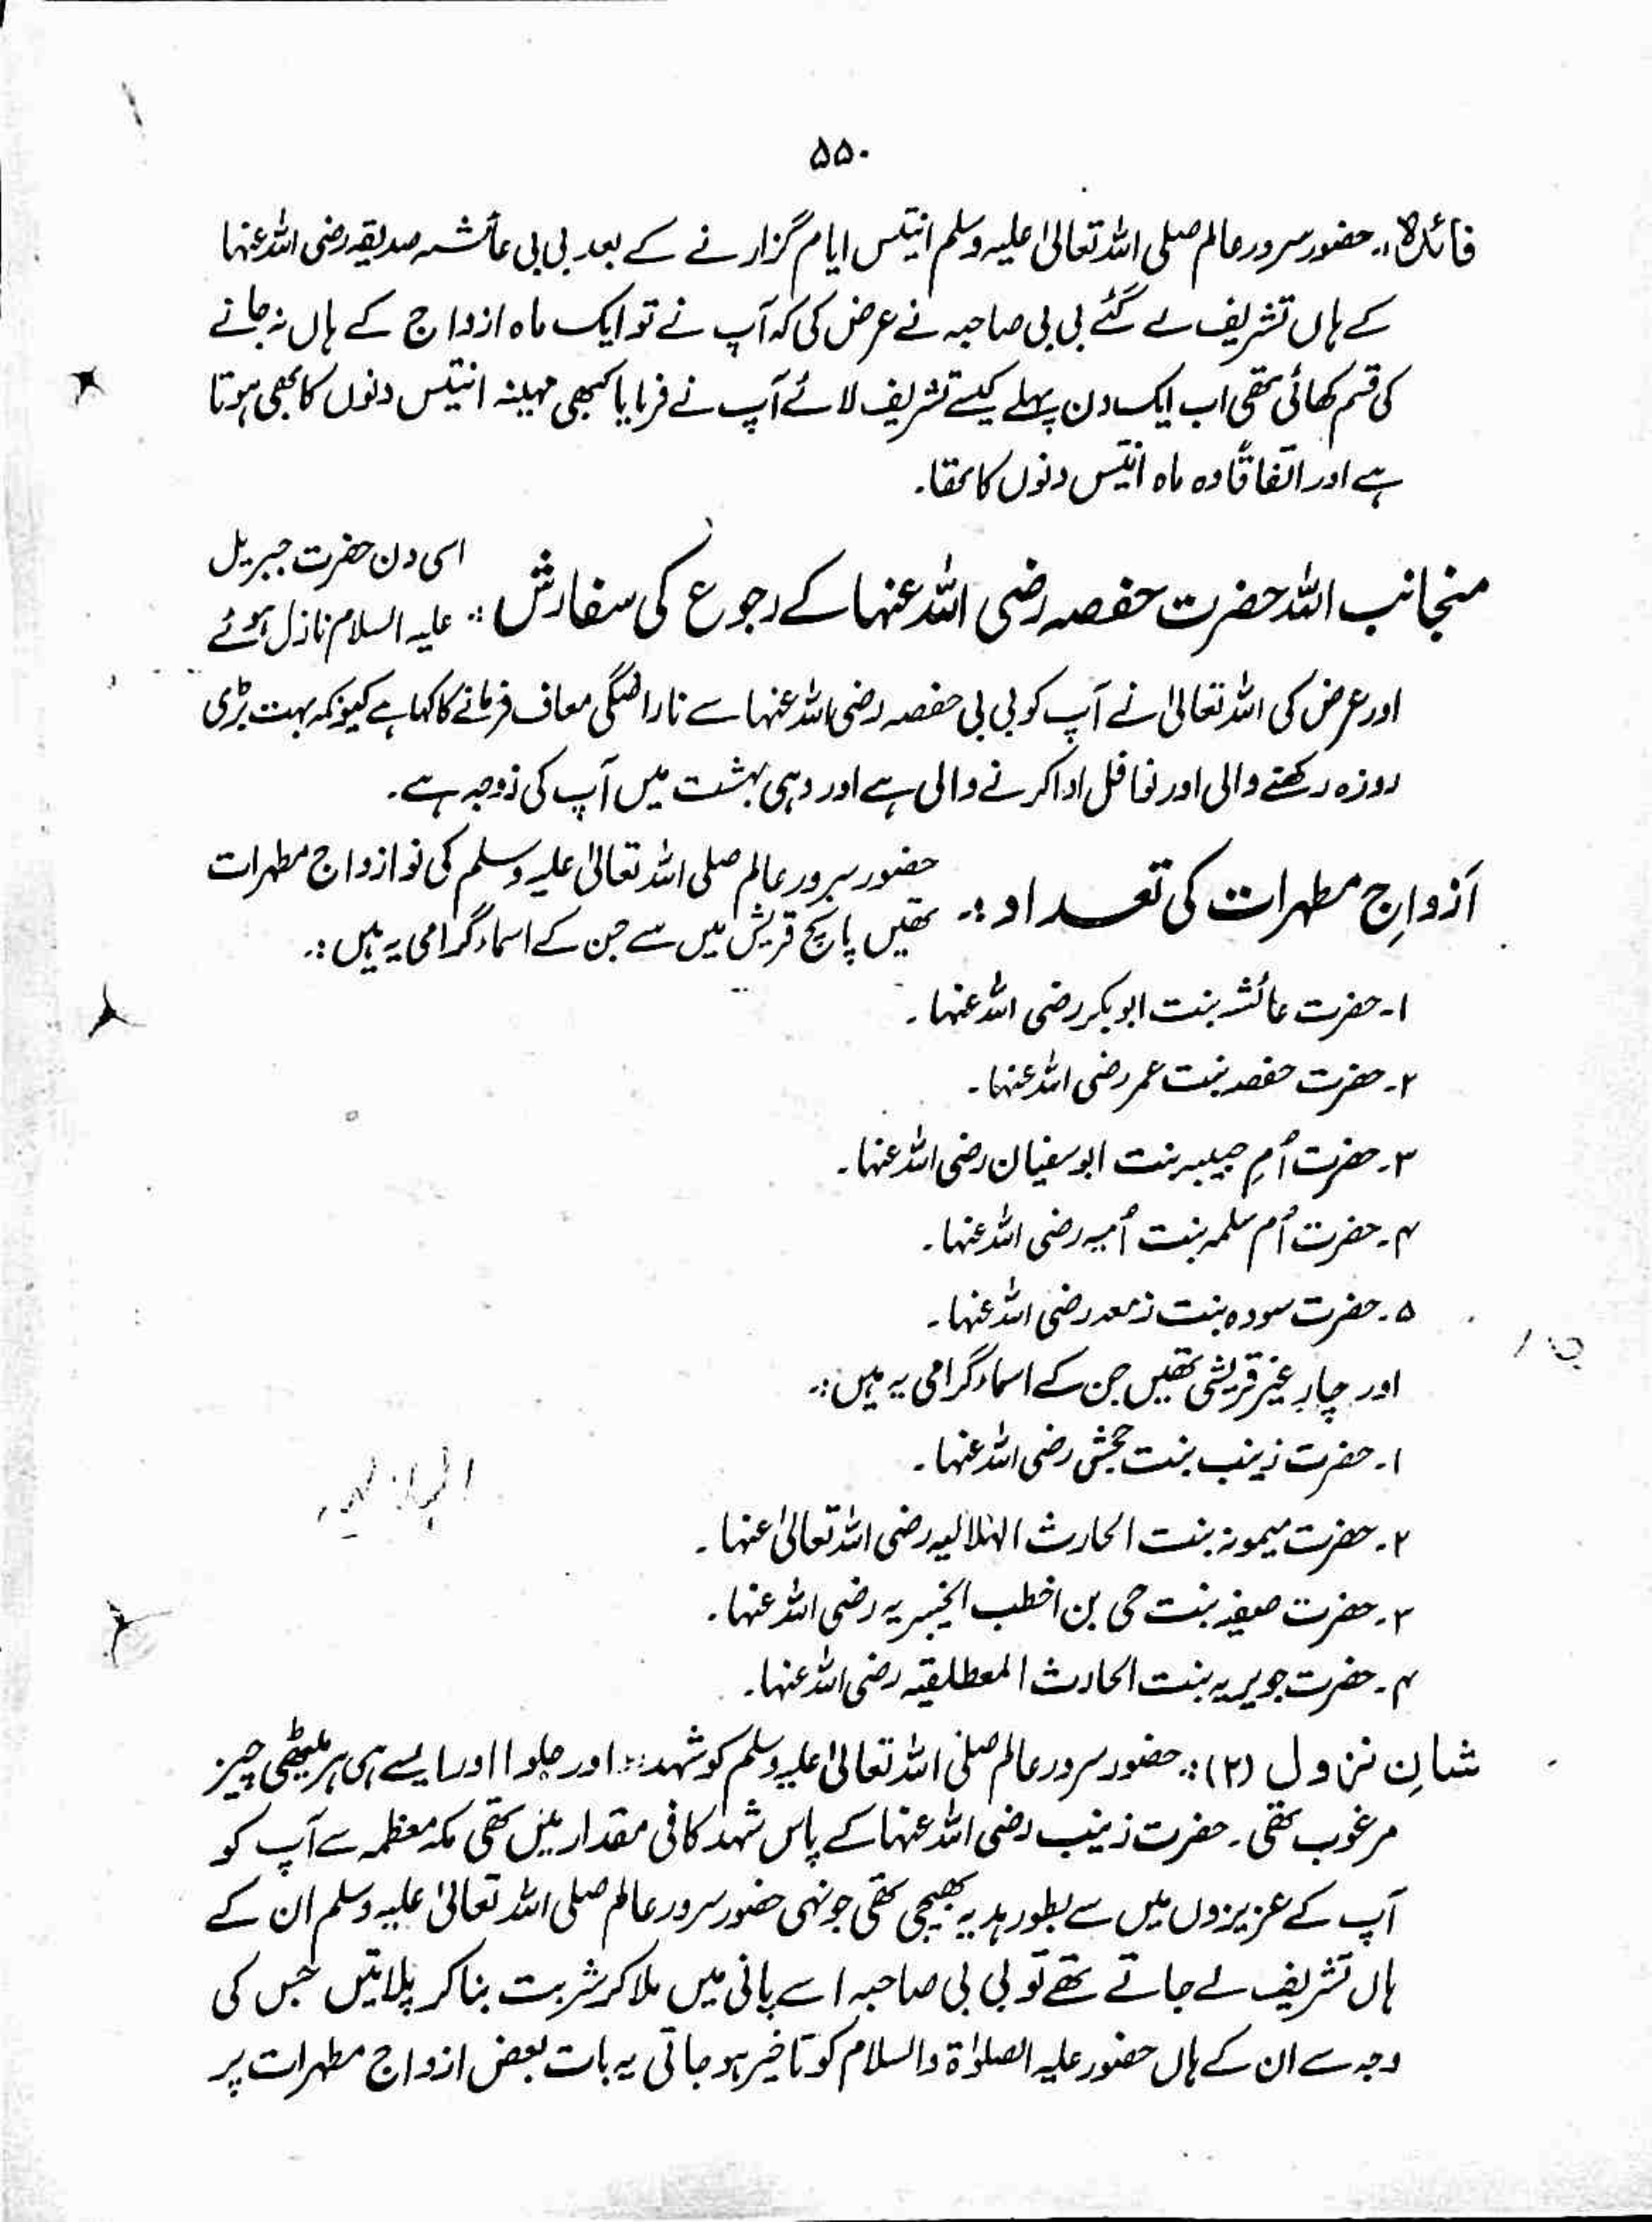 ۵۵۰
فائدہ:۔ حضور سرور عالم صلی اللہ تعالیٰ علیہ وسلم انتیس ایام گزارنے کے بعد بی بی عائشہ صدیقہ رضی اللہ عنہا
کے ہاں تشریف لے گئے بی بی صاحبہ نے عرض کی کہ آپ نے تو ایک ماہ ازواج کے ہاں نہ جانے
کی قسم کھائی تھی اب ایک دن پہلے کیسے تشریف لائے آپ نے فرمایا کبھی مہینہ انتیس دنوں کا بھی ہوتا
ہے اور اتفاقاً وہ ماہ انتیس دنوں کا تھا۔
منجانب اللہ حضرت حفصہ رضی اللہ عنہا کے رجوع کی سفارش :۔ اسی دن حضرت جبریل
علیہ السلام نازل ہوئے
اور عرض کی اللہ تعالیٰ نے آپ کو بی بی حفصہ رضی اللہ عنہا سے ناراضگی معاف فرمانے کا کہا ہے کیونکہ بہت بڑی
روزہ رکھنے والی اور نوافل ادا کرنے والی ہے اور وہی بہشت میں آپ کی زوجہ ہے۔
ازواجِ مطہرات کی تعداد :۔ حضور سرور عالم صلی اللہ تعالیٰ علیہ وسلم کی نو ازواج مطہرات
تھیں پانچ قریش میں سے جن کے اسماء گرامی یہ ہیں :۔
۱۔ حضرت عائشہ بنت ابوبکر رضی اللہ عنہا۔
۲۔ حضرت حفصہ بنت عمر رضی اللہ عنہا۔
۳۔ حضرت اُمِ حبیبہ بنت ابوسفیان رضی اللہ عنہا۔
۴۔ حضرت اُم سلمہ بنت اُمیہ رضی اللہ عنہا۔
۵۔ حضرت سودہ بنت زمعہ رضی اللہ عنہا۔
اور چار غیر قریشی تھیں جن کے اسماء گرامی یہ ہیں :۔
۱۔ حضرت زینب بنت جحش رضی اللہ عنہا۔
۲۔ حضرت میمونہ بنت الحارث الہلالیہ رضی اللہ تعالیٰ عنہا۔
۳۔ حضرت صفیہ بنت حی بن اخطب الخیبریہ رضی اللہ عنہا۔
۴۔ حضرت جویریہ بنت الحارث المعطلقیہ رضی اللہ عنہا۔
شانِ نزول (۲) :۔ حضور سرور عالم صلی اللہ تعالیٰ علیہ وسلم کو شہد اور حلوا اور ایسے ہی ہر میٹھی چیز
مرغوب تھی۔ حضرت زینب رضی اللہ عنہا کے پاس شہد کافی مقدار میں تھی مکہ معظمہ سے آپ کو
آپ کے عزیزوں میں سے بطور ہدیہ بھیجی تھی جونہی حضور سرور عالم صلی اللہ تعالیٰ علیہ وسلم ان کے
ہاں تشریف لے جاتے تھے تو بی بی صاحبہ اسے پانی میں ملا کر شربت بنا کر پلاتیں جس کی
وجہ سے ان کے ہاں حضور علیہ الصلوٰۃ والسلام کو تاخیر ہو جاتی یہ بات بعض ازواج مطہرات پر